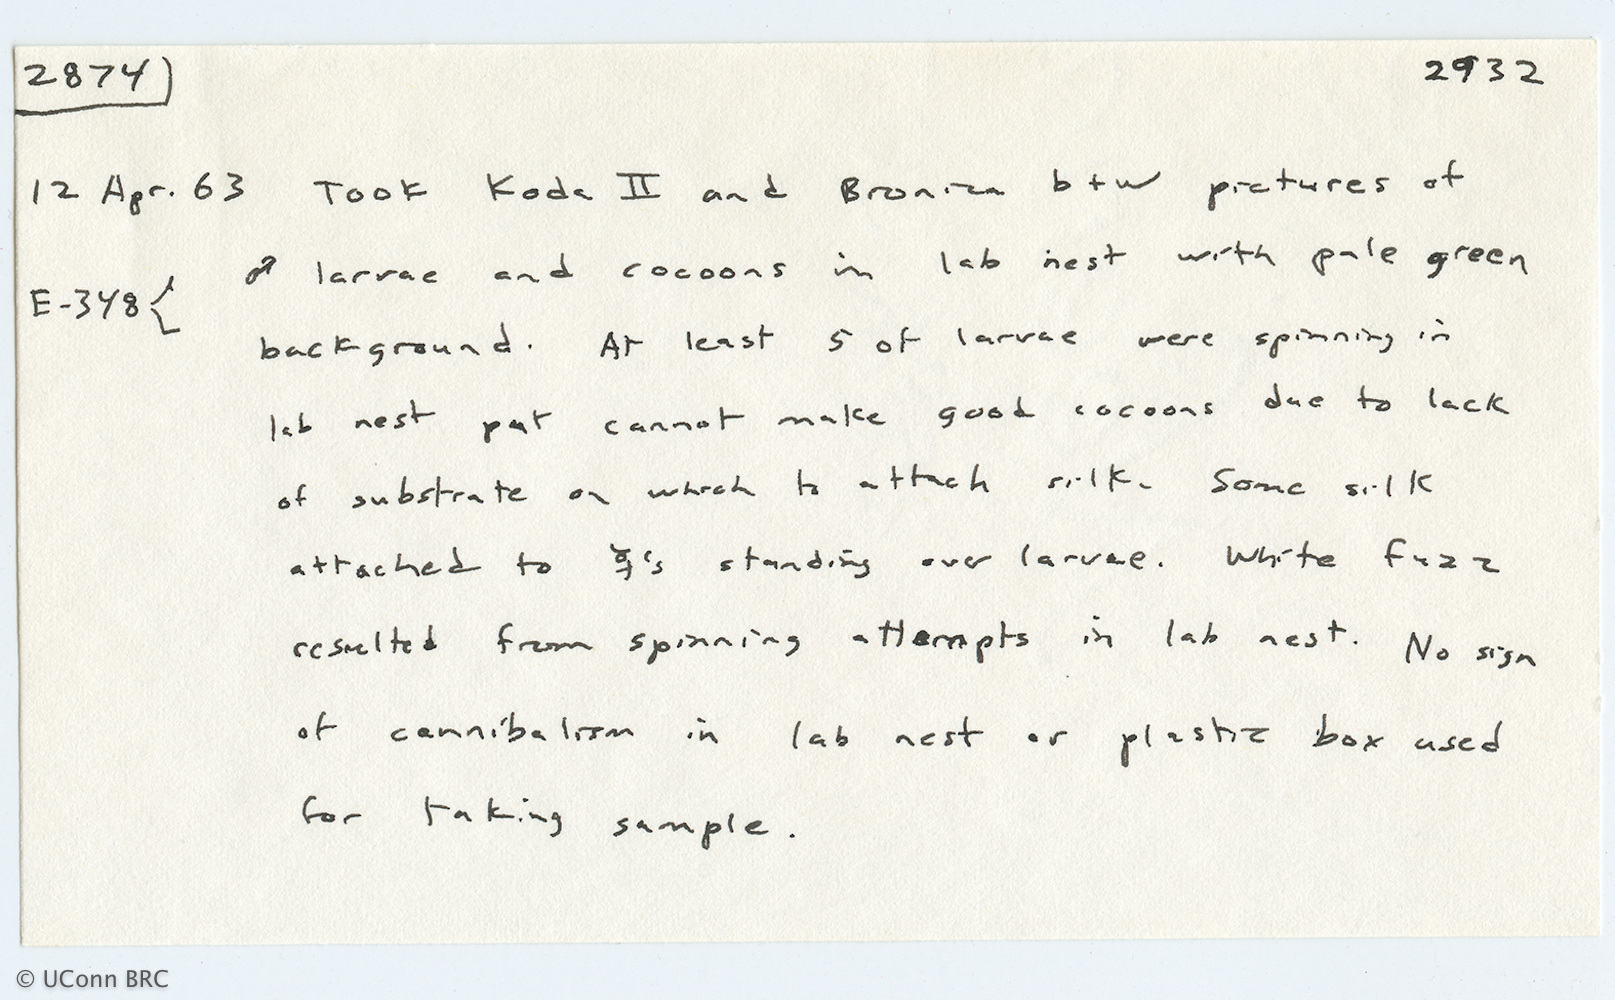 2874) 2932
12 Apr. 63 Took Koda II and Bronica b+w pictures of
♂ larvae and cocoons in lab nest with pale green
E-348{
background. At least 5 of larvae were spinning in
lab nest put cannot make good cocoons due to lack
of substrate on which to attach silk. Some silk
attached to ☿'s standing over larvae. White fuzz
resulted from spinning attempts in lab nest. No sign
of cannibalism in lab nest or plastic box used
for taking sample.
© UConn BRC